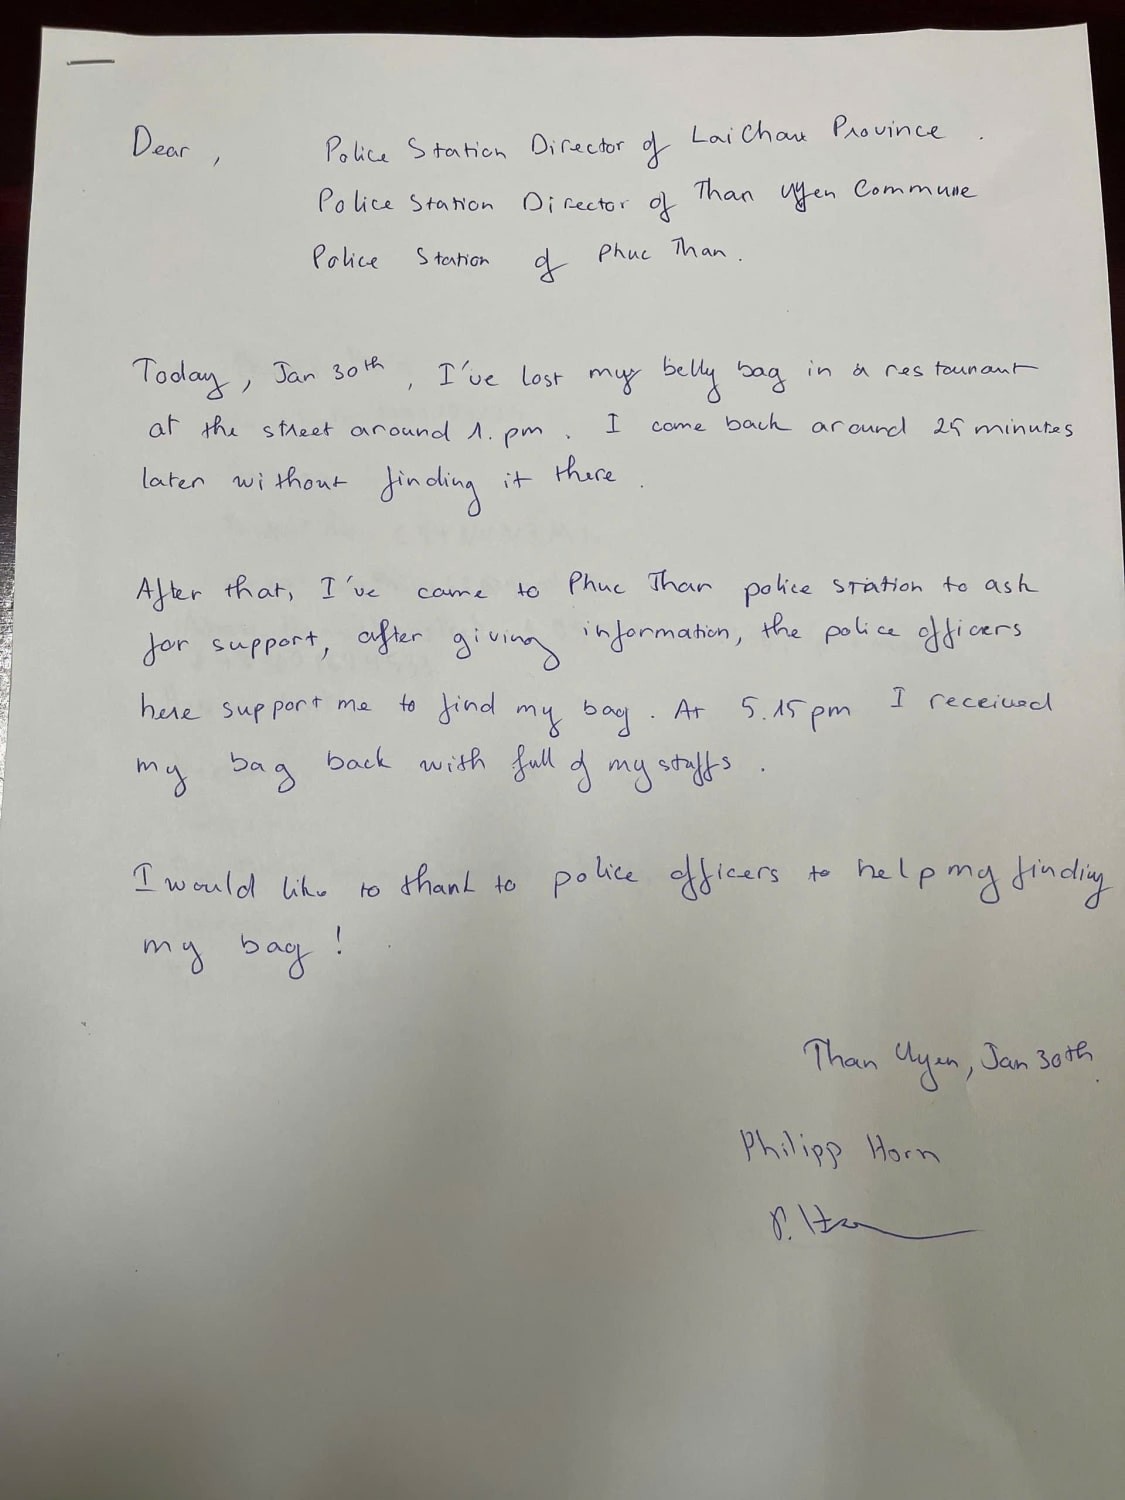 Dear , Police Station Director of Lai Chau Province .
Police Station Director of Than Uyen Commune
Police Station of Phuc Than .
Today , Jan 30th , I've lost my belly bag in a restaurant
at the street around 1. pm . I come back around 25 minutes
later without finding it there .
After that, I've came to Phuc Than police station to ask
for support, after giving information, the police officers
here support me to find my bag . At 5.15 pm I received
my bag back with full of my stuffs .
I would like to thank to police officers to help my finding
my bag !
Than Uyen, Jan 30th .
Philipp Horn